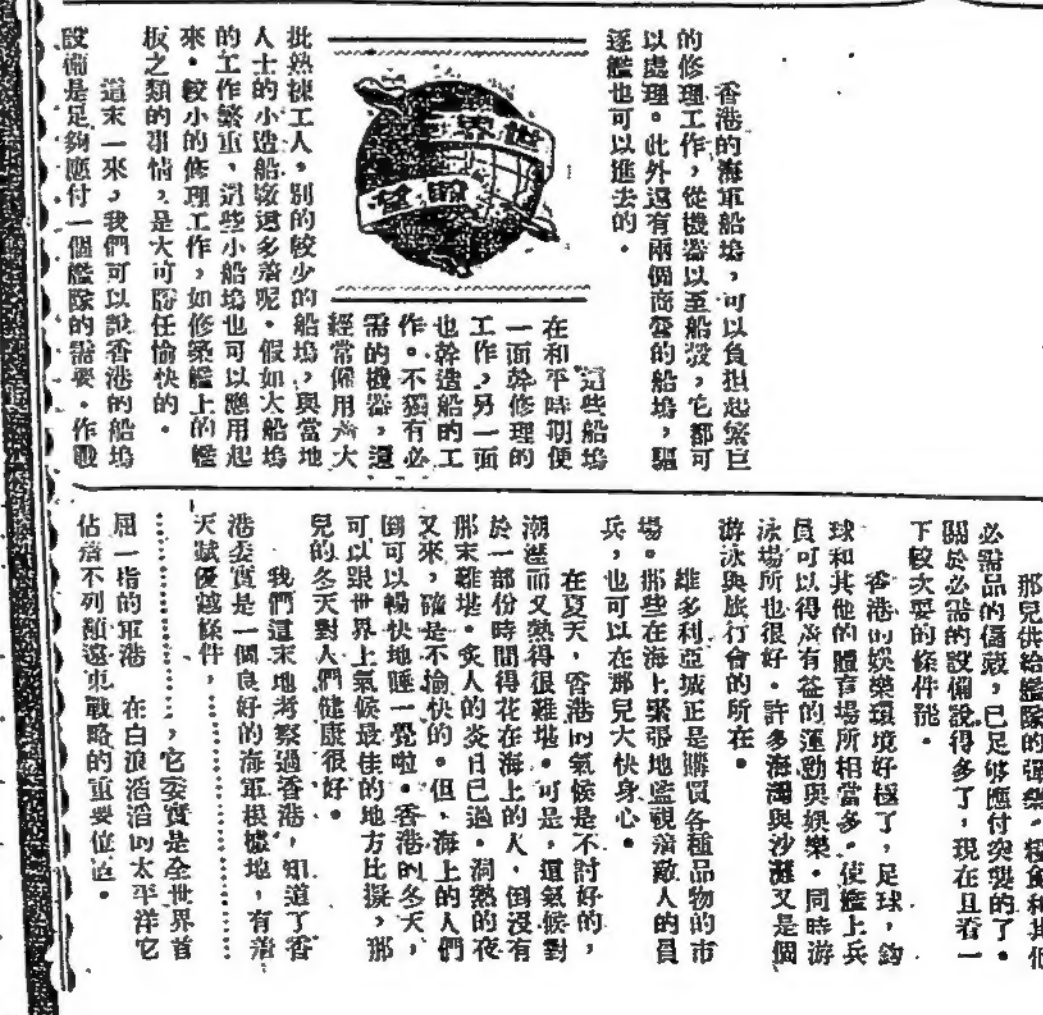 香港的海軍船塢,可以負担起繁巨
的修理工作,從機器以至船殼,它都可
以處理。此外還有兩個商營的船塢,驅
逐艦也可以進去的。
世界
名聞
這些船塢
在和平時期便
一面幹修理的
工作,另一面
也幹造船的工
作。不獨有必
需的機器,還
經常僱用着大
批熟揀工人。別的較少的船塢,與當地
人士的小造船廠還多着呢。假如大船塢
的工作繁重,這些小船塢也可以應用起
來。較小的修理工作,如修築艦上的艦
板之類的事情,是大可勝任愉快的。
這末一來,我們可以說香港的船塢
設備是足夠應付一個艦隊的需要。作戰
那兒供給艦隊的彈藥,糧食和其他
必需品的儲藏,已足够應付突襲的了。
關於必需的設備說得多了,現在且看一
下較次要的條件罷。
香港的娛樂環境好極了,足球,鈎
球和其他的體育場所相當多。使艦上兵
員可以得着有益的運動與娛樂。同時游
泳場所也很好。許多海灣與沙灘又是個
游泳與旅行會的所在。
維多利亞城正是購買各種品物的市
場。那些在海上緊張地監視着敵人的員
兵,也可以在那兒大快身心。
在夏天,香港的氣候是不討好的,
潮溼而又熱得很難堪。可是,這氣候對
於一部份時間得花在海上的人,倒沒有
那末難堪。炙人的炎日已過。洞熱的夜
又來,確是不愉快的。但、海上的人們
倒可以暢快地睡一覺啦。香港的冬天,
可以跟世界上氣候最佳的地方比擬,那
兒的冬天對人們健康很好。
我們這末地考察過香港,知道了香
港委實是一個良好的海軍根據地,有着
天賦優越條件,…………
…………,它委實是全世界首
屈一指的軍港 在白浪滔滔的太平洋它
佔着不列顛遠東戰略的重要位置。